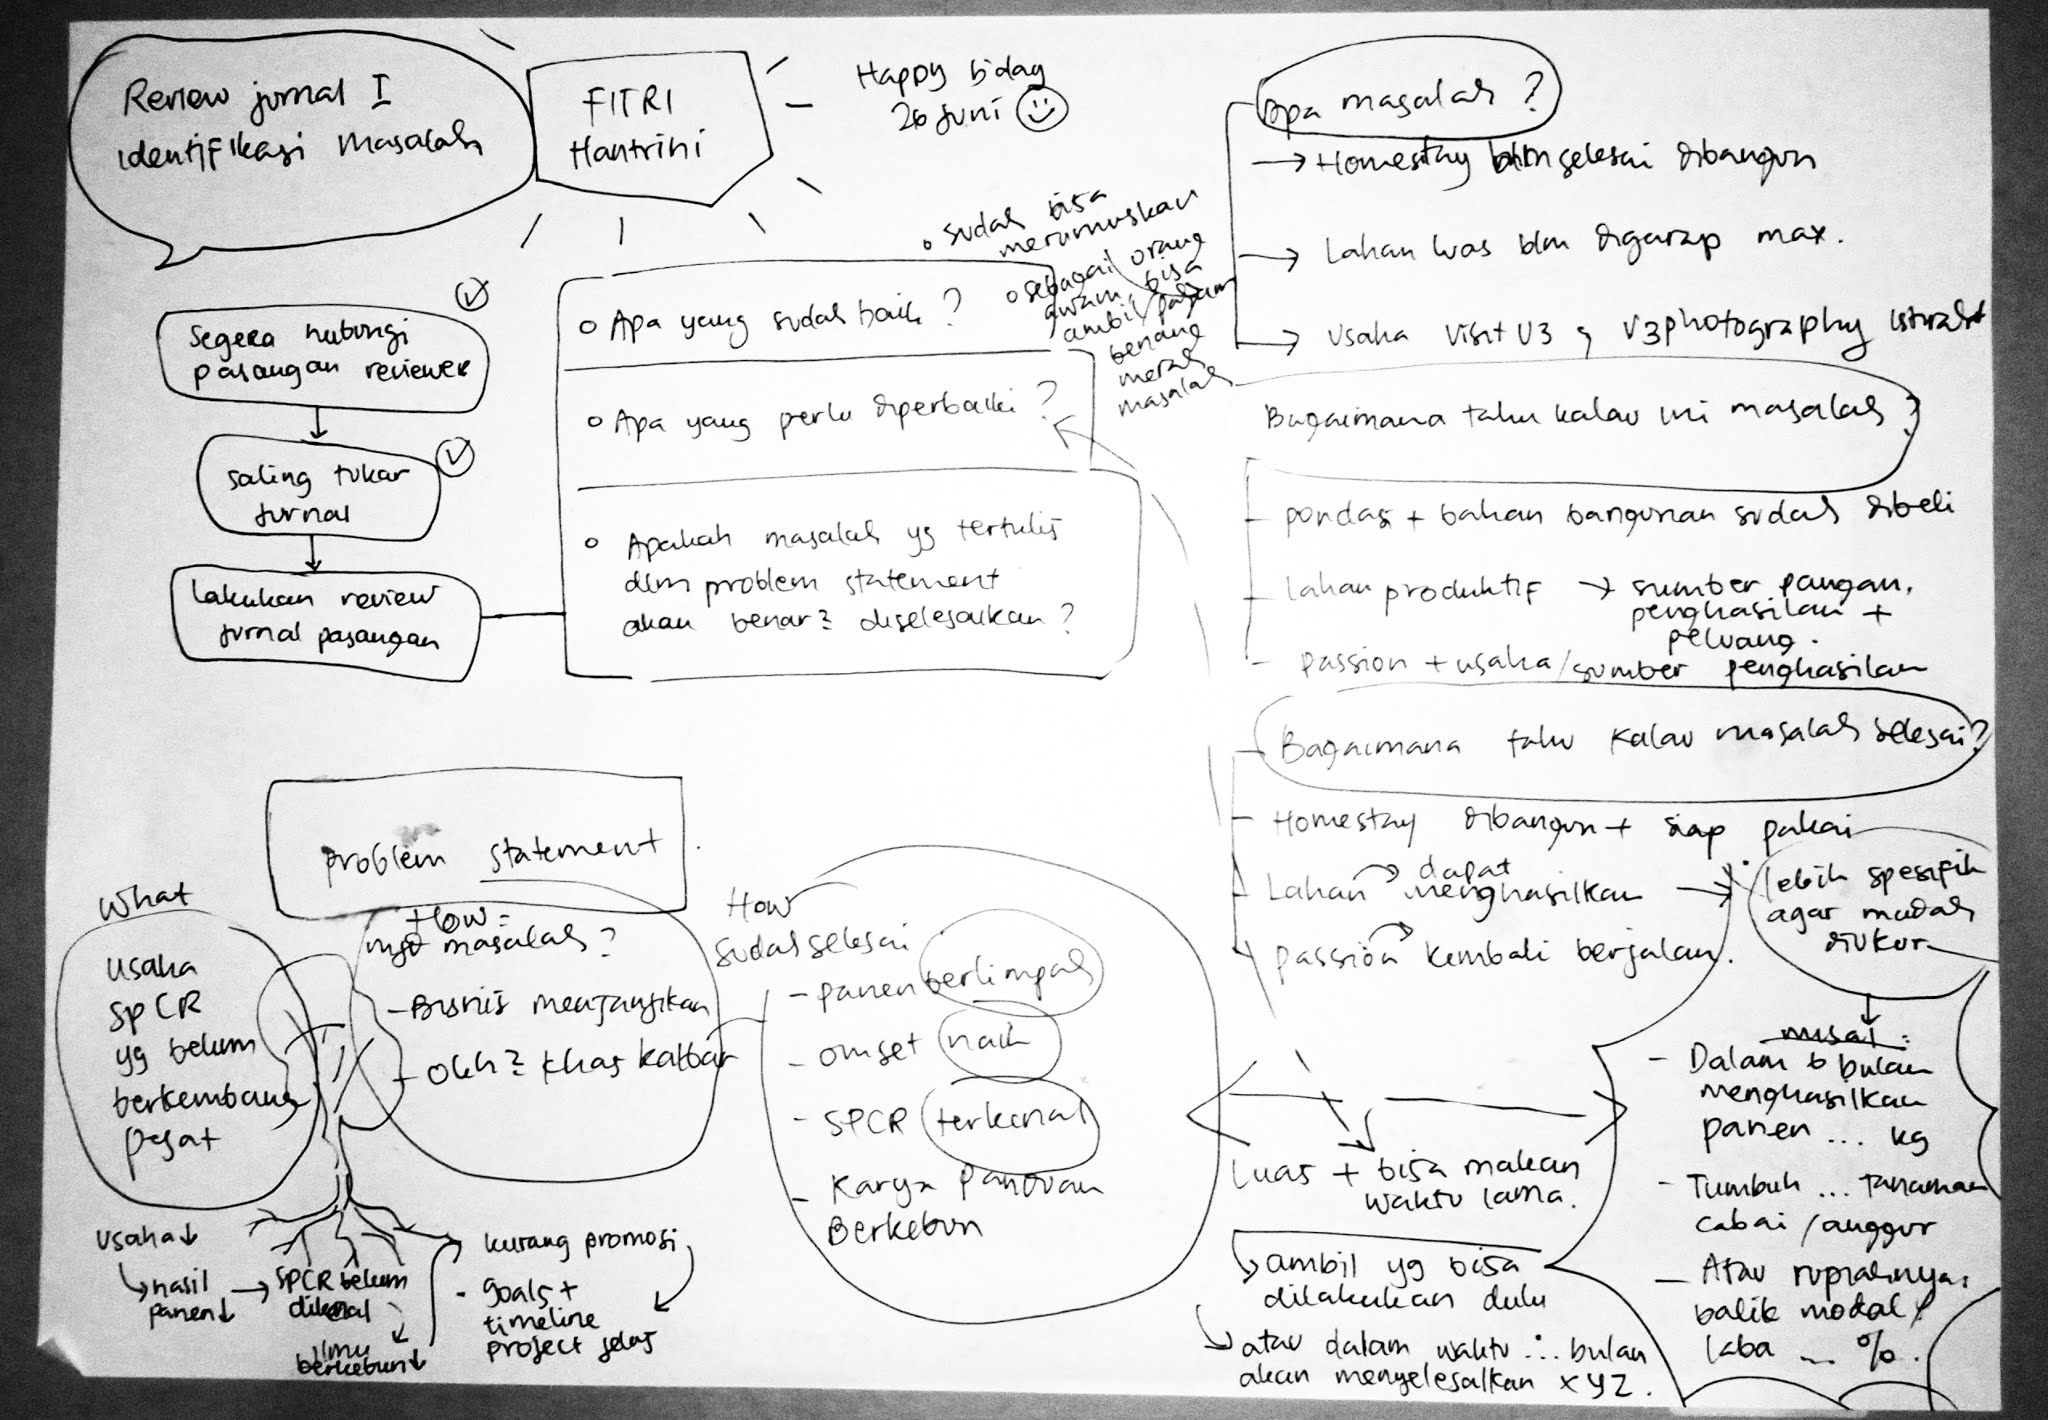 Review jurnal I
identifikasi masalah
FITRI
Hantrini
Happy b'day
26 Juni
Segera hubungi
pasangan reviewer
saling tukar
jurnal
Lakukan review
jurnal pasangan
Apa yang sudah baik?
sudah bisa
merumuskan
sebagai orang
awam bisa
ambil/paham
benang
merah
masalah
Apa yang perlu diperbaiki?
Apakah masalah yg tertulis
dlm problem statement
akan benar2 diselesaikan?
Apa masalah?
Homestay blm selesai dibangun
Lahan luas blm digarap max.
Usaha Visit V3 & V3photography istirahat
Bagaimana tahu kalau ini masalah?
- pondasi + bahan bangunan sudah dibeli
- Lahan produktif → sumber pangan,
penghasilan +
peluang.
- passion + usaha/sumber penghasilan
Bagaimana tahu kalau masalah selesai?
- Homestay dibangun + siap pakai
- Lahan → dapat
menghasilkan →
- passion → kembali berjalan.
lebih spesifik
agar mudah
diukur
misal:
- Dalam 6 bulan
menghasilkan
panen ... kg
- Tumbuh ... tanaman
cabai/anggur
- Atau rupiahnya,
balik modal/
laba ... %.
Luas + bisa makan
waktu lama.
ambil yg bisa
dilakukan dulu
atau dalam waktu ... bulan
akan menyelesaikan XYZ.
problem statement
What
usaha
SPCR
yg belum
berkembang
pesat
How =
masalah?
- Bisnis menjanjikan
- Oleh2 khas kalbar
How
sudah selesai
- panen berlimpah
- omset naik
- SPCR terkenal
- Karya Panduan
Berkebun
usaha↓
hasil
panen↓
→ SPCR belum
dikenal
ilmu
berkebun↓
kurang promosi
- goals +
timeline
project jelas